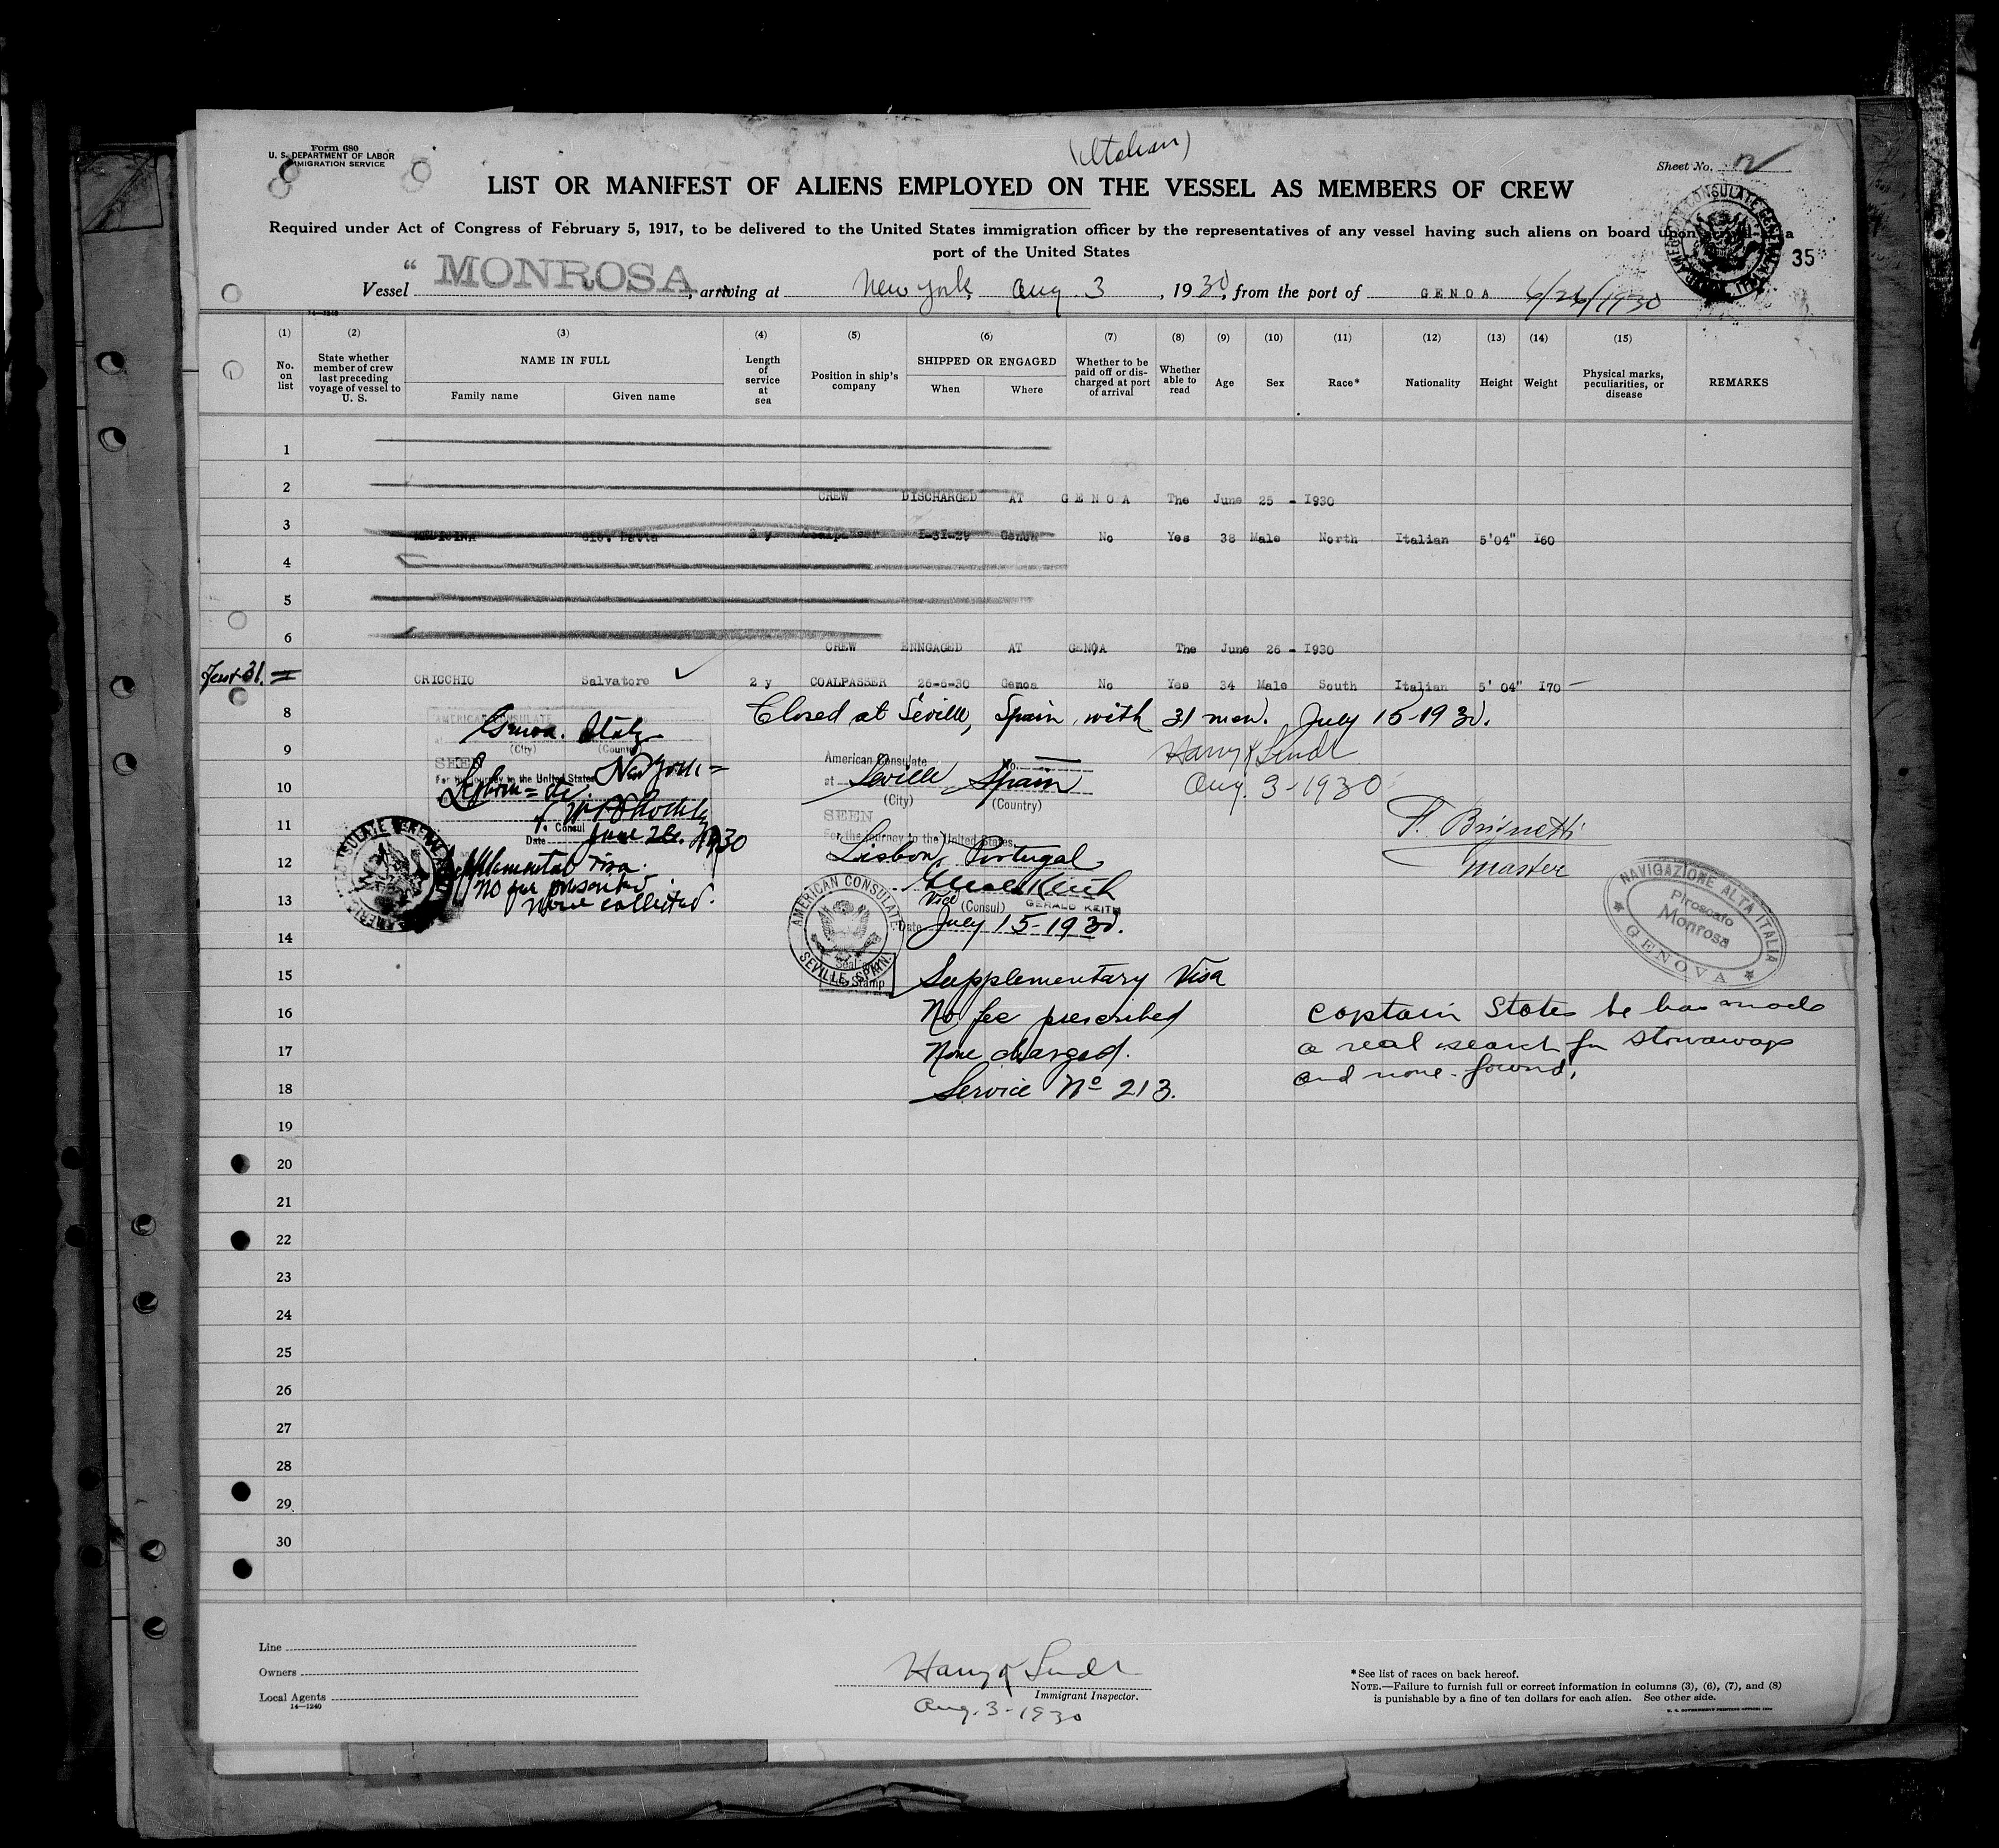 Form 680
U. S. DEPARTMENT OF LABOR
IMMIGRATION SERVICE
(Italian)
Sheet No. 2
LIST OR MANIFEST OF ALIENS EMPLOYED ON THE VESSEL AS MEMBERS OF CREW
Required under Act of Congress of February 5, 1917, to be delivered to the United States immigration officer by the representatives of any vessel having such aliens on board upon arrival at a
port of the United States
35
Vessel "MONROSA, arriving at New York, Aug. 3, 1930, from the port of GENOA 6/26/1930
14—1240
(1) (2) (3) (4) (5) (6) (7) (8) (9) (10) (11) (12) (13) (14) (15)
No. on list
State whether member of crew last preceding voyage of vessel to U. S.
NAME IN FULL
Family name Given name
Length of service at sea
Position in ship's company
SHIPPED OR ENGAGED
When Where
Whether to be paid off or discharged at port of arrival
Whether able to read
Age Sex Race* Nationality Height Weight
Physical marks, peculiarities, or disease
REMARKS
1
2
CREW DISCHARGED AT GENOA The June 25 - I930
3
Genoa No Yes 38 Male North Italian 5'04" I60
4
5
6
CREW ENNGAGED AT GENOA The June 26 - I930
31. CRICCHIO Salvatore ✓ 2 y COALPASSER 26-6-30 Genoa No Yes 34 Male South Italian 5' 04" I70 -
8 Closed at Seville, Spain, with 31 men. July 15-1930.
AMERICAN CONSULATE
Genoa. Italy
(City) (Country)
SEEN
For the journey to the United States
New York
Consul
Date June 26. 1930
Supplemental visa.
No fee prescribed.
None collected.
9
10
11
12
13
14
15
16
17
18
American Consulate No.
at Seville Spain
(City) (Country)
SEEN
For the journey to the United States.
Lisbon, Portugal
Gerald Keith
Vice (Consul) GERALD KEITH
Date July 15-1930.
AMERICAN CONSULATE
SEVILLE, SPAIN.
Stamp
Supplementary Visa
No fee prescribed
None charged.
Service No 213.
Aug. 3-1930
F. Brignetti
Master
NAVIGAZIONE ALTA ITALIA
Piroscafo
Monrosa
GENOVA
Captain states he has made
a real search for stowaways
and none found.
19
20
21
22
23
24
25
26
27
28
29
30
Line
Owners
Local Agents
14—1240
Immigrant Inspector.
Aug. 3-1930
*See list of races on back hereof.
NOTE.—Failure to furnish full or correct information in columns (3), (6), (7), and (8)
is punishable by a fine of ten dollars for each alien. See other side.